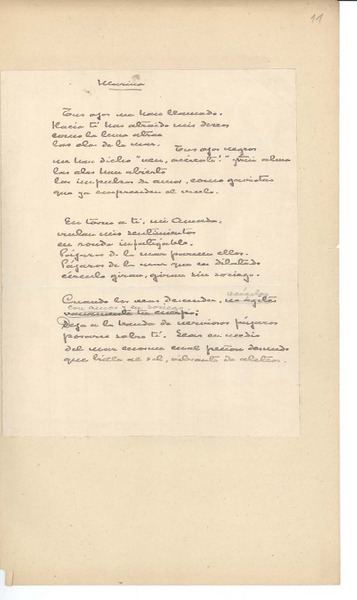 11
Marina
Tus ojos me han llamado.
Hacia ti han atraído mis deseos
como la luna atrae
las olas de la mar. Tus ojos negros
me han dicho "ven, acércate!" y en mi alma
las alas han abierto
los impulsos de amor, como gaviotas
que ya emprenden el vuelo.
En torno a ti, mi Amada,
vuelan mis sentimientos
en ronda infatigable.
Pájaros de la mar parecen ellos.
Pájaros de la mar que en dilatado
círculo giran, giran sin sosiego.
Cuando los veas
con amor y en sosiego
vanamente tu cuerpo;
Deja a la ronda de nerviosos pájaros
posarse sobre ti. Eres en medio
del mar como cual peñón desnudo
que brilla al sol, vibrante de aleteos.